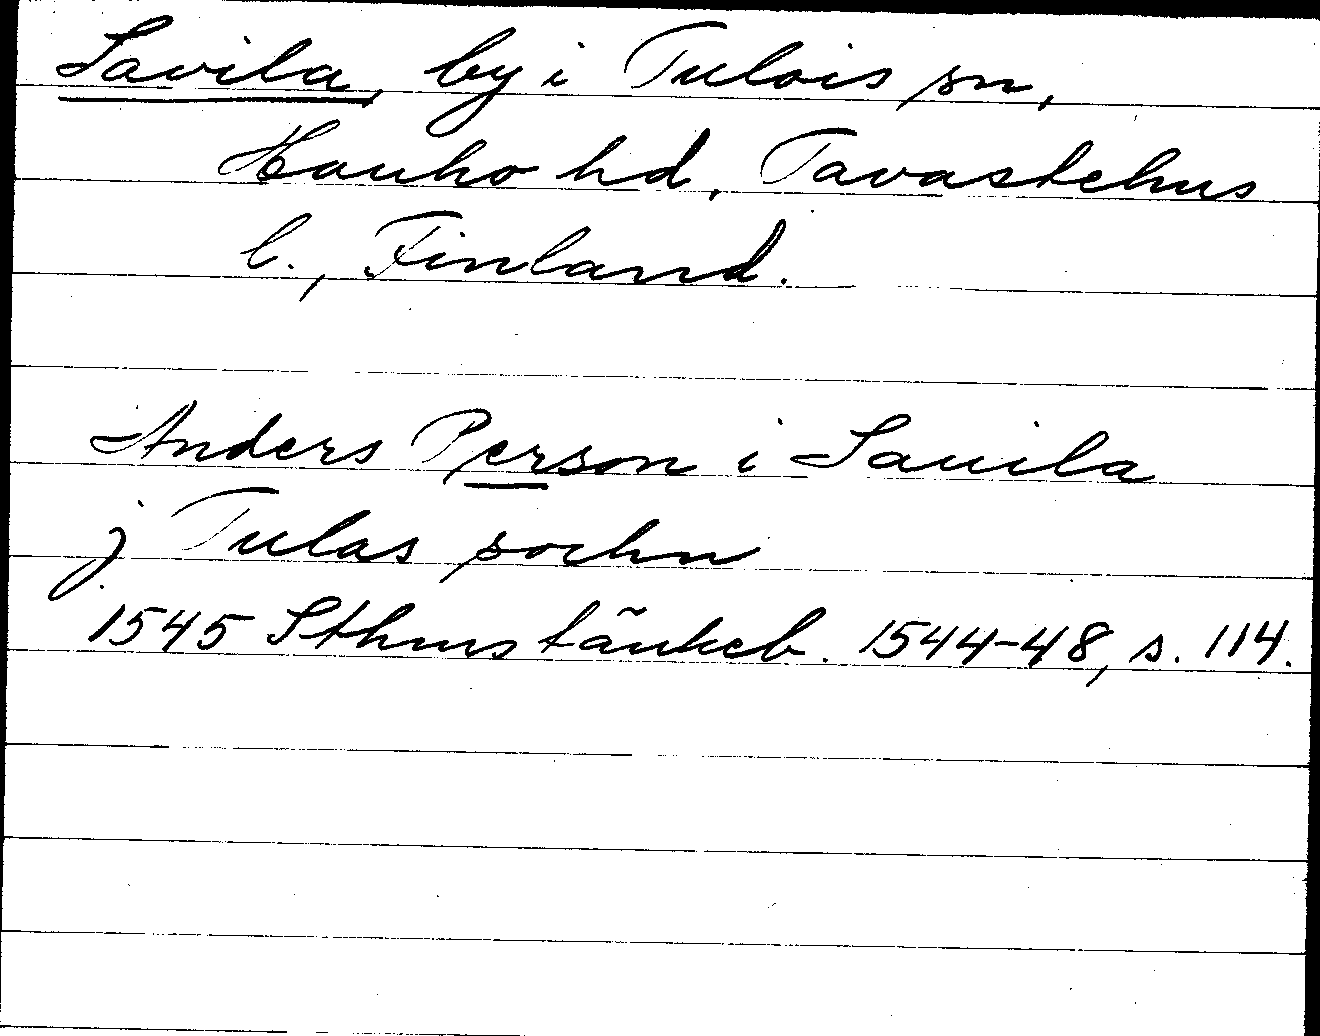 Savila, by i Tulois sn,
Hauho hd, Tavastehus
l., Finland.
Anders Person i Sauila
j Tulas sochn
1545 Sthms tänkeb. 1544-48, s. 114.